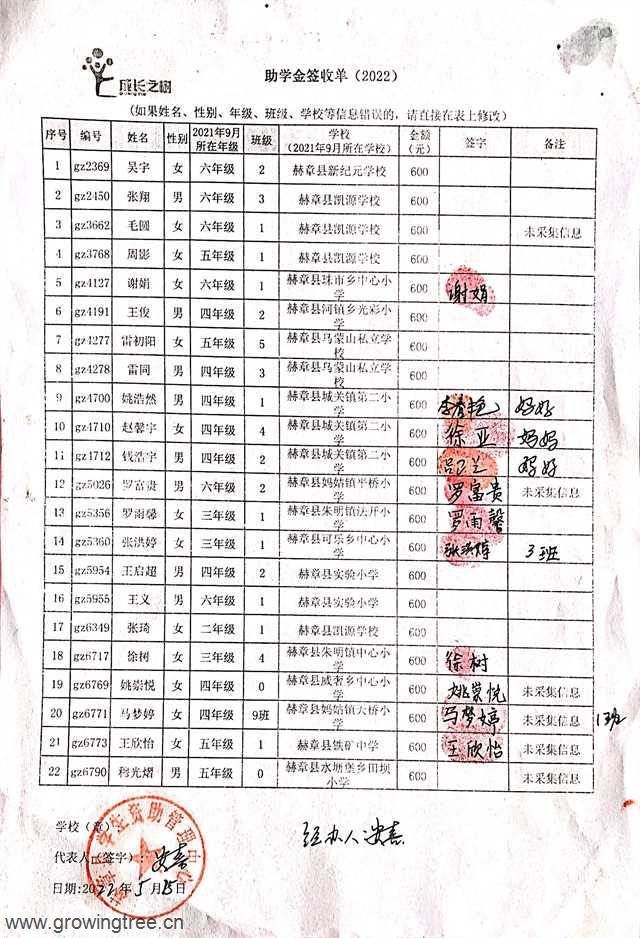 成长之树
助学金签收单（2022）
（如果姓名、性别、年级、班级、学校等信息错误的，请直接在表上修改）
序号 编号 姓名 性别 2021年9月所在年级 班级 学校（2021年9月所在学校） 金额（元） 签字 备注
1 gz2369 吴宇 女 六年级 2 赫章县新纪元学校 600
2 gz2450 张翔 男 六年级 3 赫章县凯源学校 600
3 gz3662 毛圆 女 六年级 1 赫章县凯源学校 600 未采集信息
4 gz3768 周影 女 五年级 1 赫章县凯源学校 600
5 gz4127 谢娟 女 六年级 1 赫章县珠市乡中心小学 600 谢娟
6 gz4191 王俊 男 四年级 2 赫章县河镇乡光彩小学 600
7 gz4277 雷初阳 女 五年级 5 赫章县乌蒙山私立学校 600
8 gz4278 雷同 男 四年级 3 赫章县乌蒙山私立学校 600
9 gz4700 姚浩然 男 四年级 1 赫章县城关镇第二小学 600 妈妈
10 gz4710 赵馨宇 女 四年级 4 赫章县城关镇第二小学 600 徐亚 妈妈
11 gz4712 钱浩宇 男 四年级 2 赫章县城关镇第二小学 600 妈妈
12 gz5026 罗富贵 男 六年级 2 赫章县妈姑镇平桥小学 600 罗富贵 未采集信息
13 gz5356 罗雨馨 女 三年级 1 赫章县朱明镇法开小学 600 罗雨馨
14 gz5360 张洪婷 女 三年级 1 赫章县可乐乡中心小学 600 张洪婷 3班
15 gz5954 王启超 男 四年级 2 赫章县实验小学 600
16 gz5955 王义 男 六年级 1 赫章县实验小学 600
17 gz6349 张琦 女 二年级 1 赫章县凯源学校 600
18 gz6717 徐树 女 三年级 4 赫章县朱明镇中心小学 600 徐树
19 gz6769 姚崇悦 女 四年级 0 赫章县威奢乡中心小学 600 姚崇悦 未采集信息
20 gz6771 马梦婷 女 四年级 9班 赫章县妈姑镇天桥小学 600 马梦婷 未采集信息 1班
21 gz6773 王欣怡 女 五年级 1 赫章县铁矿中学 600 王欣怡 未采集信息
22 gz6790 穆光熠 男 五年级 0 赫章县水塘堡乡田坝小学 600 未采集信息
学校（章）
经办人：安喜
代表人（签字）：安喜
日期：2022年5月15日
赫章县学生资助管理中心
www.growingtree.cn